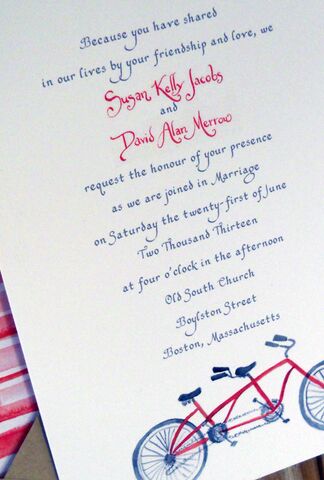 Because you have shared
in our lives by your friendship and love, we
Susan Kelly Jacobs
and
David Alan Merrow
request the honour of your presence
as we are joined in Marriage
on Saturday the twenty-first of June
Two Thousand Thirteen
at four o'clock in the afternoon
Old South Church
Boylston Street
Boston, Massachusetts